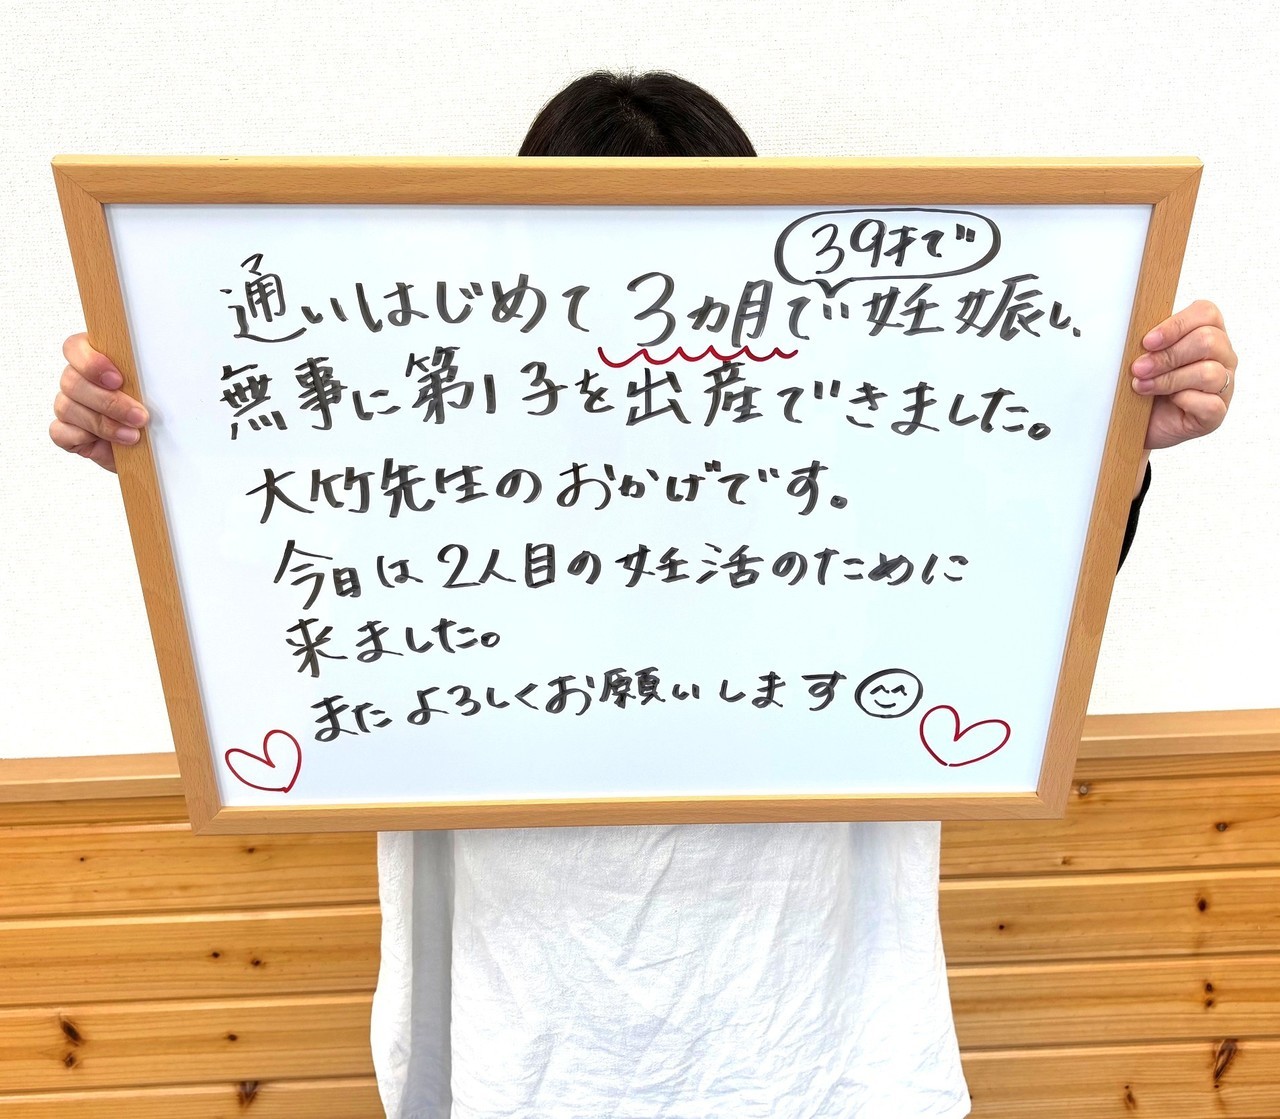 39才で
通いはじめて3カ月で妊娠し、
無事に第1子を出産できました。
大竹先生のおかげです。
今日は2人目の妊活のために
来ました。
またよろしくお願いします